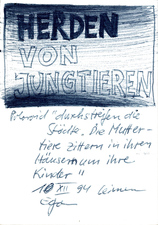 HERDEN
VON
JUNGTIEREN
"durchstreifen die
Städte. Die Mutter-
tiere zittern in ihren
Häusern um ihre
Kinder"
10 XII 94